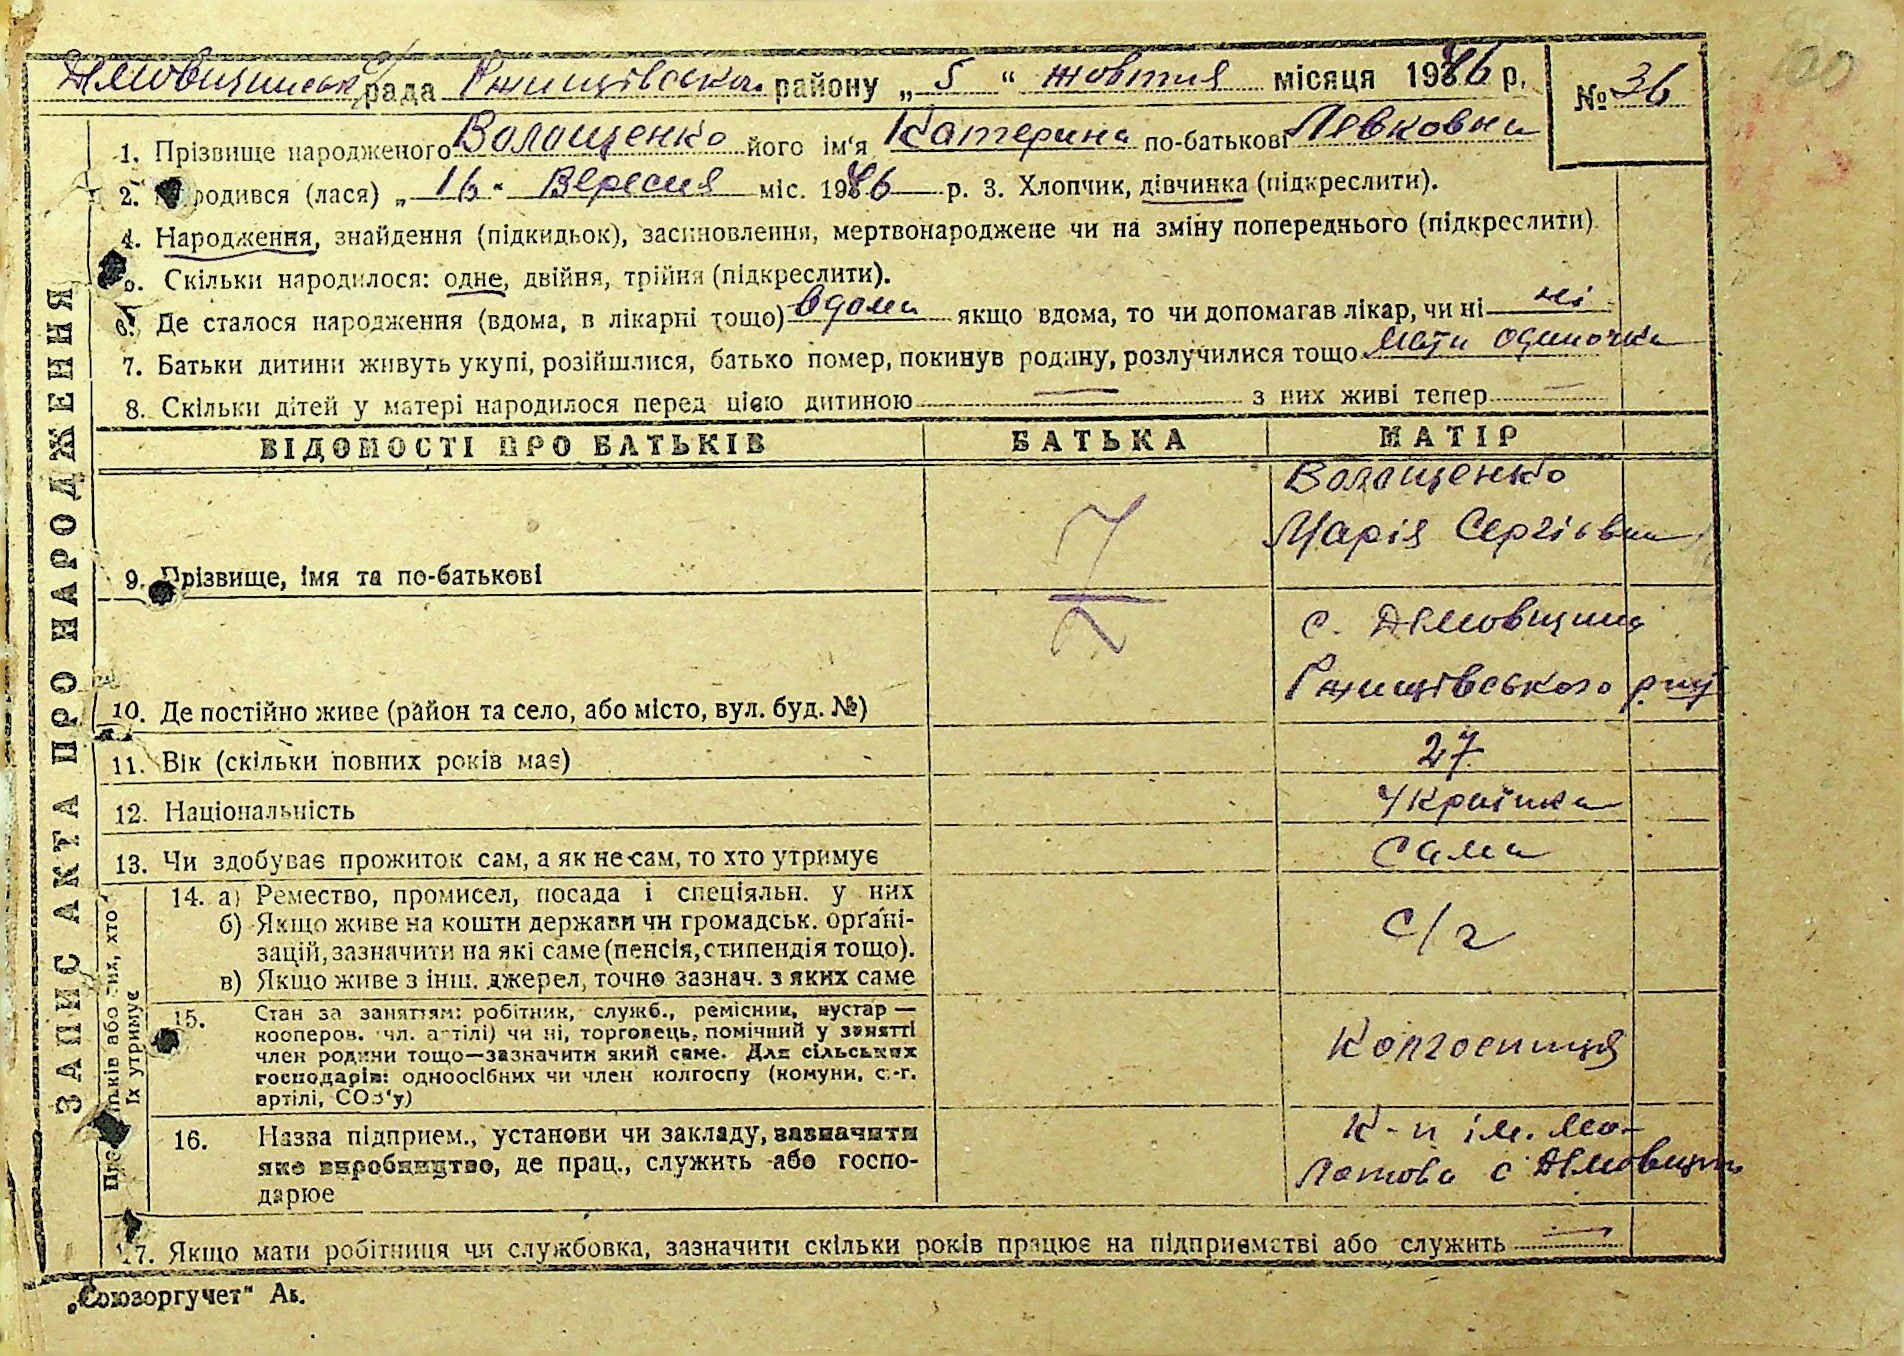 Демовщинська рада Ржищівського району „ 5 “ жовтня місяця 1946 р.
№ 36
100
ЗАПИС АКТА ПРО НАРОДЖЕННЯ
1. Прізвище народженого Волощенко його ім'я Катерина по-батькові Левковна
2. Народився (лася) „ 16 " Вересня міс. 1946 р. 3. Хлопчик, дівчинка (підкреслити).
4. Народження, знайдення (підкидьок), засиновлення, мертвонароджене чи на зміну попереднього (підкреслити)
5. Скільки народилося: одне, двійня, трійня (підкреслити).
6. Де сталося народження (вдома, в лікарні тощо) вдома якщо вдома, то чи допомагав лікар, чи ні ні
7. Батьки дитини живуть укупі, розійшлися, батько помер, покинув родину, розлучилися тощо Мати одиночка
8. Скільки дітей у матері народилося перед цією дитиною — з них живі тепер —
ВІДОМОСТІ ПРО БАТЬКІВ БАТЬКА МАТІР
Волощенко
Марія Сергіївна
9. Прізвище, імя та по-батькові
с. Демовщина
Ржищівського р-ну
10. Де постійно живе (район та село, або місто, вул. буд. №)
11. Вік (скільки повних років має) 27
12. Національність Українка
13. Чи здобуває прожиток сам, а як не сам, то хто утримує сама
14. а) Ремество, промисел, посада і спеціяльн. у них
б) Якщо живе на кошти держави чи громадськ. орґані-
зацій, зазначити на які саме (пенсія, стипендія тощо).
с/г
в) Якщо живе з інш. джерел, точно зазнач. з яких саме
15. Стан за заняттям: робітник, служб., ремісник, кустар —
кооперов. чл. артілі) чи ні, торговець, помічний у занятті
член родини тощо—зазначити який саме. Для сільських
господарів: одноосібних чи член колгоспу (комуни, с.-г.
артілі, СОЗ'у)
Колгоспниця
16. Назва підприєм., установи чи закладу, зазначити
яке виробництво, де прац., служить або госпо-
дарює
К-п ім. Мо-
лотова с Демовщин
17. Якщо мати робітниця чи службовка, зазначити скільки років працює на підприємстві або служить —
„Союзоргучет“